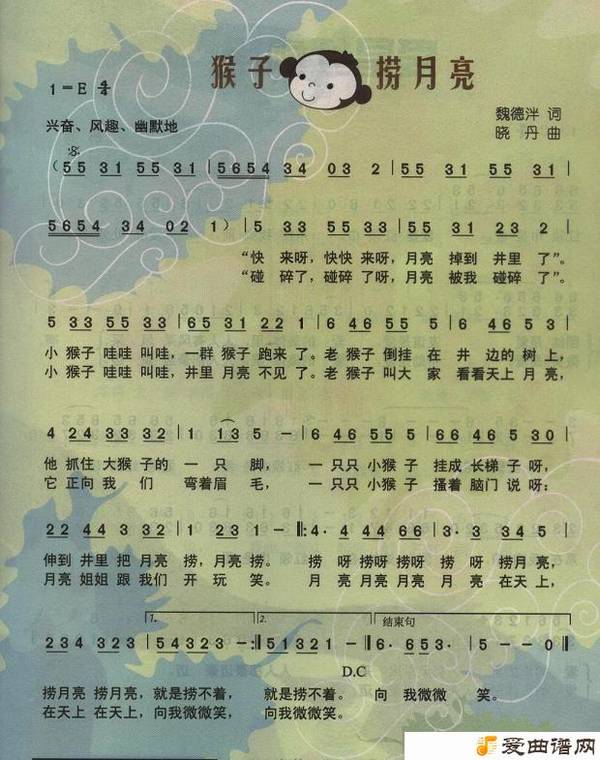 猴子捞月亮
1=E 2/4
兴奋、风趣、幽默地
魏德泮 词
晓丹 曲
(55 31 55 31 | 5654 34 03 2 | 55 31 55 31 |
5654 34 02 1) | 5 33 55 33 | 55 31 23 2 |
“快 来呀，快快 来呀，月亮 掉到 井里 了”。
“碰 碎了，碰碎 了呀，月亮 被我 碰碎 了”。
5 33 55 33 | 65 31 22 1 | 6 46 55 5 | 6 46 53 |
小 猴子 哇哇 叫哇，一群 猴子 跑来 了。老 猴子 倒挂 在 井 边的 树上，
小 猴子 哇哇 叫哇，井里 月亮 不见 了。老 猴子 叫大 家 看看天上 月亮，
4 24 33 32 | 1 13 5 - | 6 46 55 5 | 66 46 5 30 |
他 抓住 大猴 子的 一 只 脚， 一 只只 小猴 子 挂成 长梯 子 呀，
它 正向 我 们 弯着 眉 毛， 一 只只 小猴 子 搔着 脑门 说 呀：
22 44 3 32 | 1 23 1 - :|| 4· 4 44 66 | 3· 3 345 |
伸到 井里 把 月亮 捞，月亮 捞。 捞 呀 捞呀 捞呀 捞 呀 捞月 亮，
月亮 姐姐 跟 我们 开 玩 笑。 月 亮 月亮 月亮 月 亮 在天 上，
1. 2. 结束句
234 323 | 54323 - :|| 51321 - || 6· 653· | 5 - - 0 ||
D.C
捞月亮 捞月亮，就是 捞不着， 就是 捞不着。 向 我微微 笑。
在天上 在天上，向我微微 笑， 向我微微 笑。
爱曲谱网